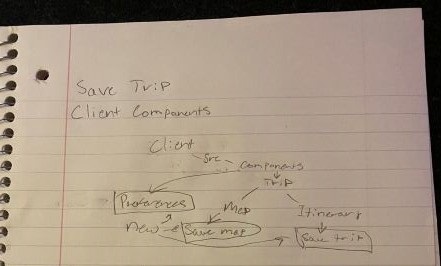 Save Trip
Client Components
Client
Src
Components
Trip
Preferences
Map
Itinerary
new
Save map
Save trip